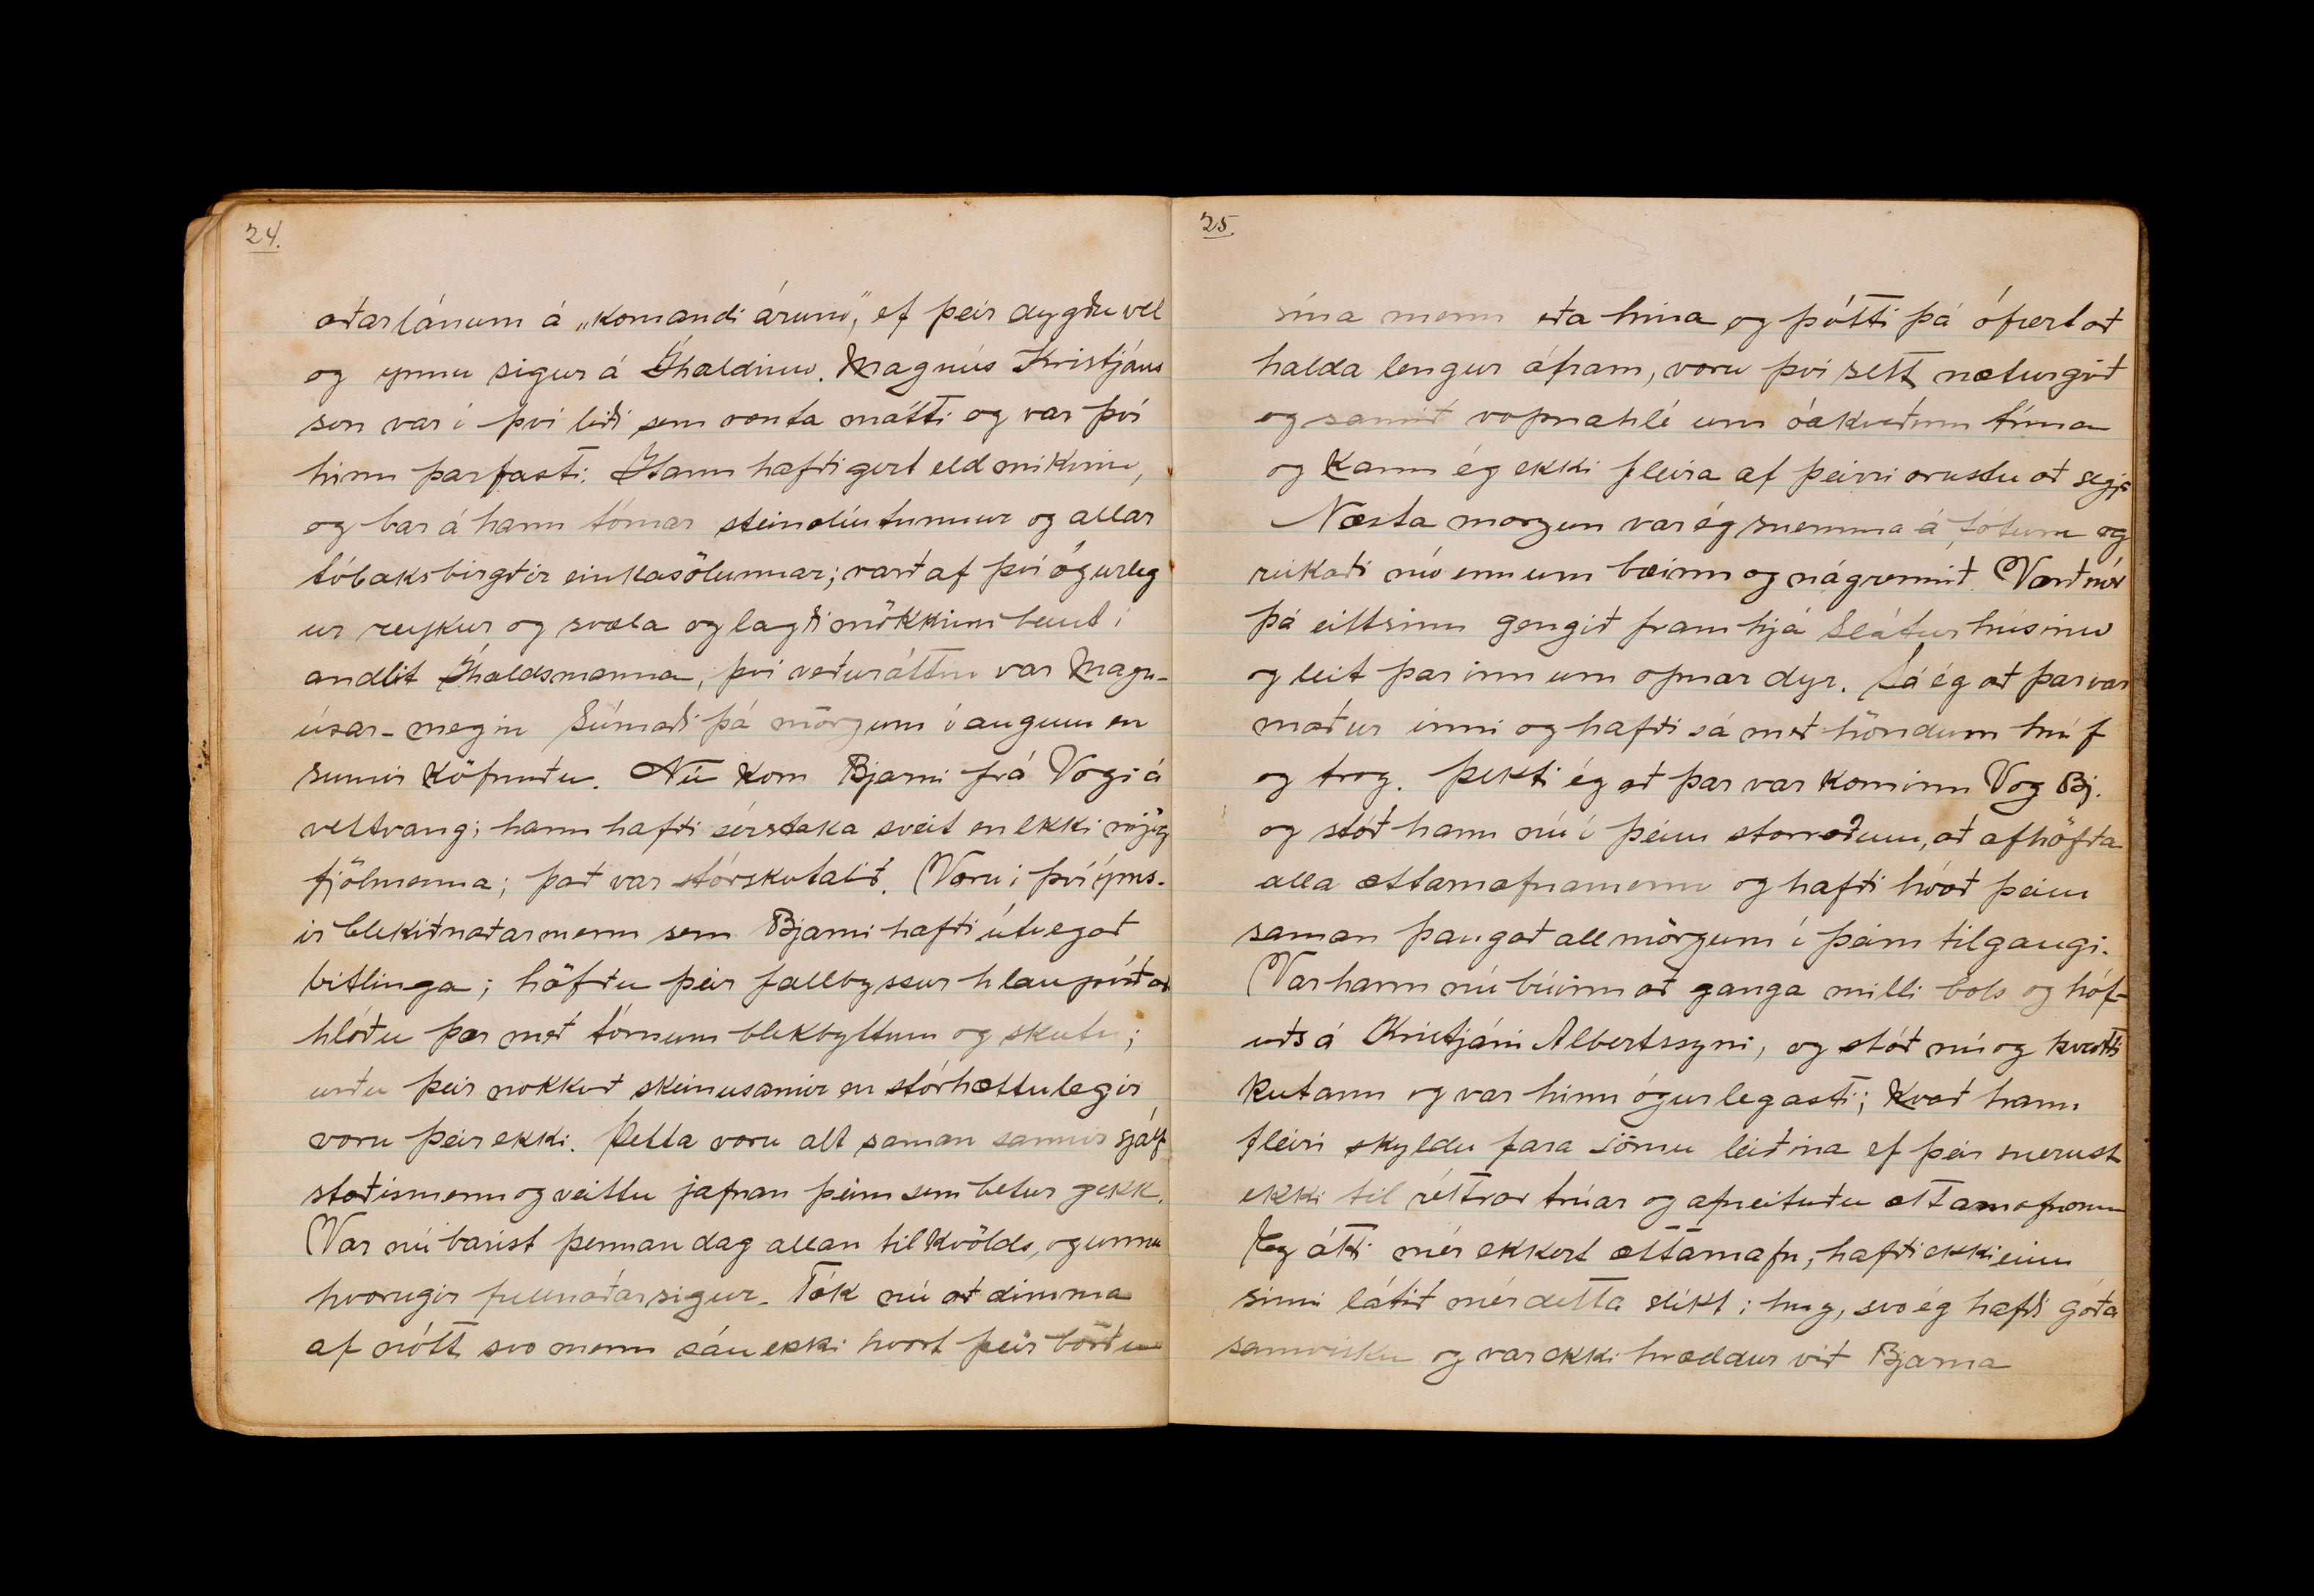 24.
aðarlánum á „komandi árum“, ef þeir dygðu vel
og ynnu sigur á Íhaldinu. Magnús Kristjáns
son var í því liði sem vonta mátti og var því
hinn þarfasti. Hann hafði gert eld mikinn,
og bar á hann tómar steinolíutunnur og allar
tóbaksbirgðir einkasölunnar; varð af því ógurleg
ur reykur og svæla og lagði mökkinn beint í
andlit Íhaldsmanna, því veðuráttin var Magn-
úsar-megin Súrnaði þá mörgum í augum en
sumir köfnuðu. Nú kom Bjarni frá Vogi á
vettvang; hann hafði sérstaka sveit en ekki mjög
fjölmenna; það var stórskotalið. Voru í því ýms-
ir blekiðnaðarmenn sem Bjarni hafði útvegað
bitlinga; höfðu þeir fallbyssur hlaupvíðar
hlóðu þær með tómum blekbyttum og skutu;
urðu þeir nokkuð skeinusamir en stórhættulegir
voru þeir ekki. Þetta voru alt saman sannir sjálf
stæðismenn og veittu jafnan þeim sem betur gekk.
Var nú barist þennan dag allan til kvölds, og unnu
hvorugir fullnaðarsigur. Tók nú að dimma
af nótt svo menn sáu ekki hvort þeir börðu
25.
sína menn eða hina og þótti þá ófært að
halda lengur áfram, voru því sett næturgrið
og samið vopnahlé um óákveðinn tíma
og kann ég ekki fleira af þeirri orustu að segja
Næsta morgun var ég snemma á fótum og
reikaði nú enn um bæinn og nágrennið. Varð mér
þá eittsinn gengið framhjá Sláturhúsinu
og leit þar inn um opnar dyr. Sá ég að þar var
maður inni og hafði sá með höndum hníf
og trog. Þekti ég að þar var kominn Vog Bj.
og stóð hann nú í þeim stórræðum, að afhöfða
alla ættarnafnamenn og hafði hóað þeim
saman þangað allmörgum í þeim tilgangi.
Var hann nú búinn að ganga milli bols og höf-
uðs á Kristjáni Albertssyni, og stóð nú og hvatti
kutann og var hinn ógurlegasti; kvað hann
fleiri skyldu fara sömu leiðina ef þeir snerust
ekki til réttrar trúar og afneituðu ættarnöfnum
Ég átti mér ekkert ættarnafn, hafði ekki einu
sinni látið mér detta slíkt í hug, svo ég hafði góða
samvisku og var ekki hræddur við Bjarna